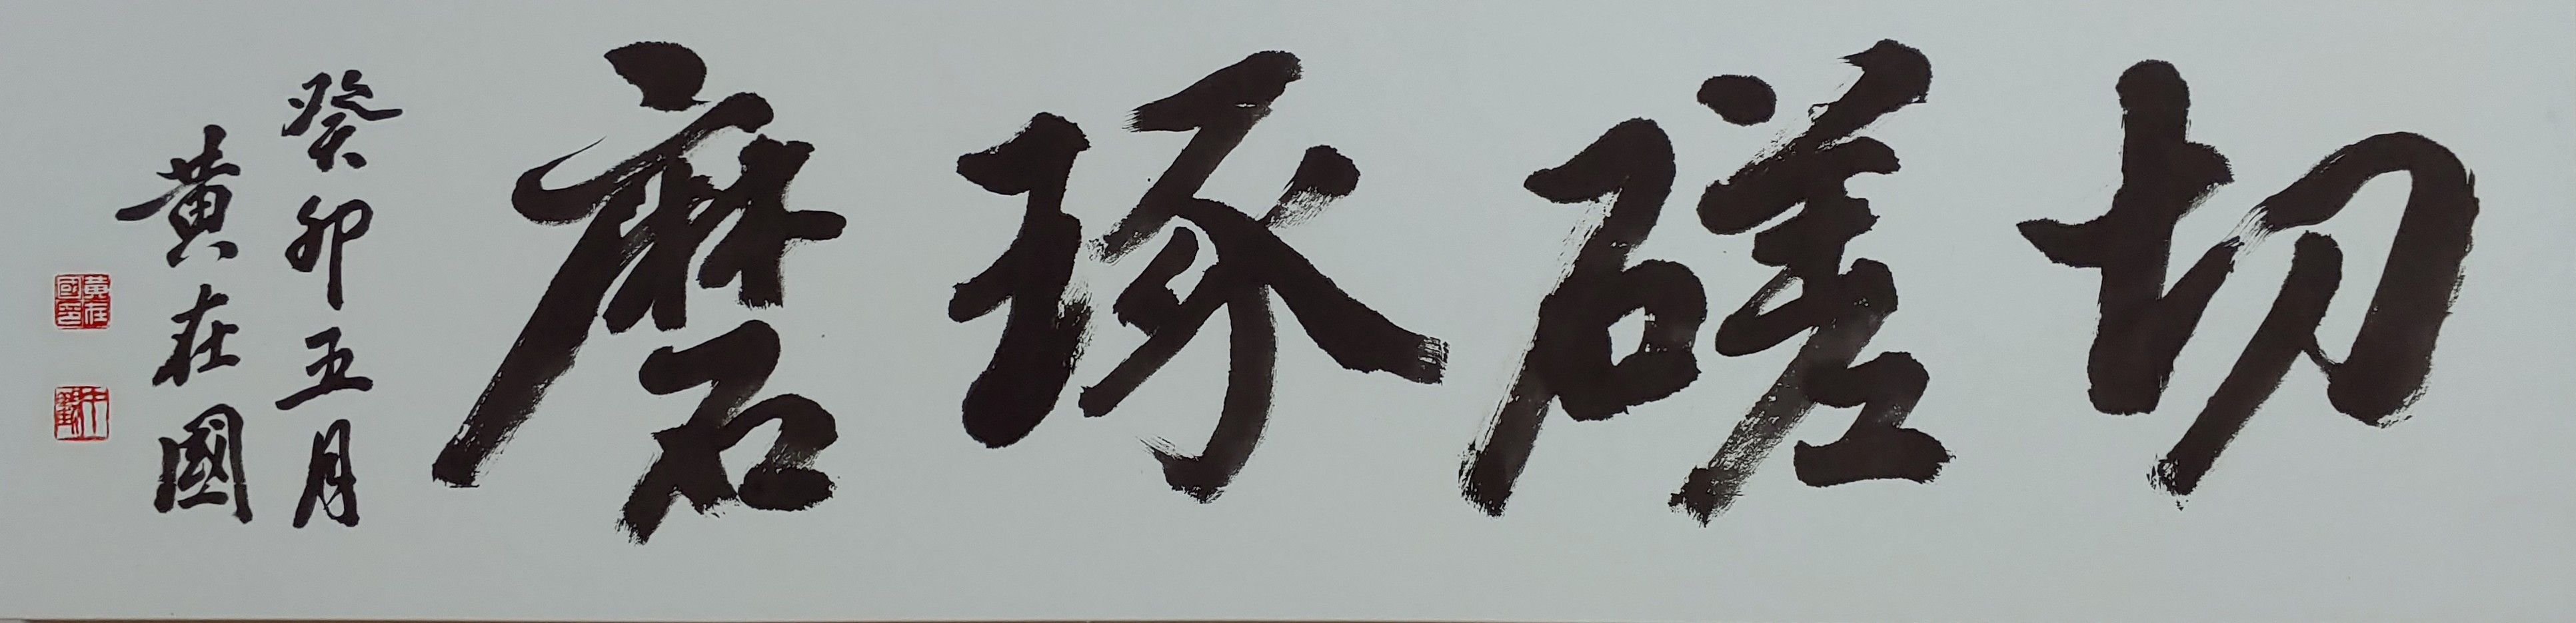 切磋琢磨
癸卯五月
黄在國
黄在
國印